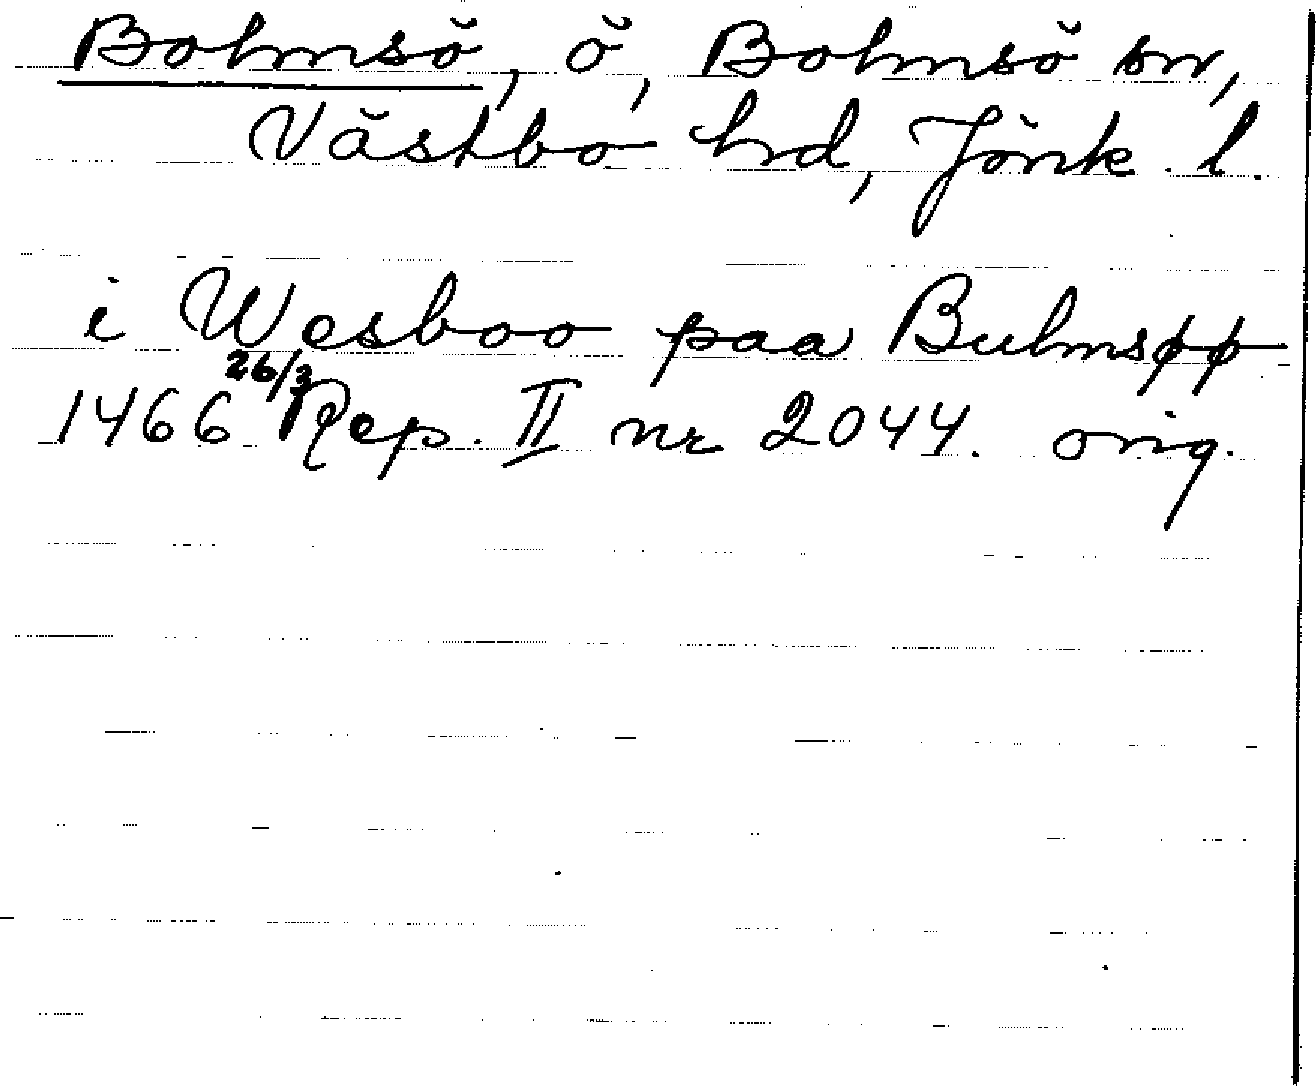 Bolmsö, ö, Bolmsö sn,
Västbo hd, Jönk. l.
i Wesboo paa Bulmsøø
1466 26/3 Rep. II nr 2044. orig.